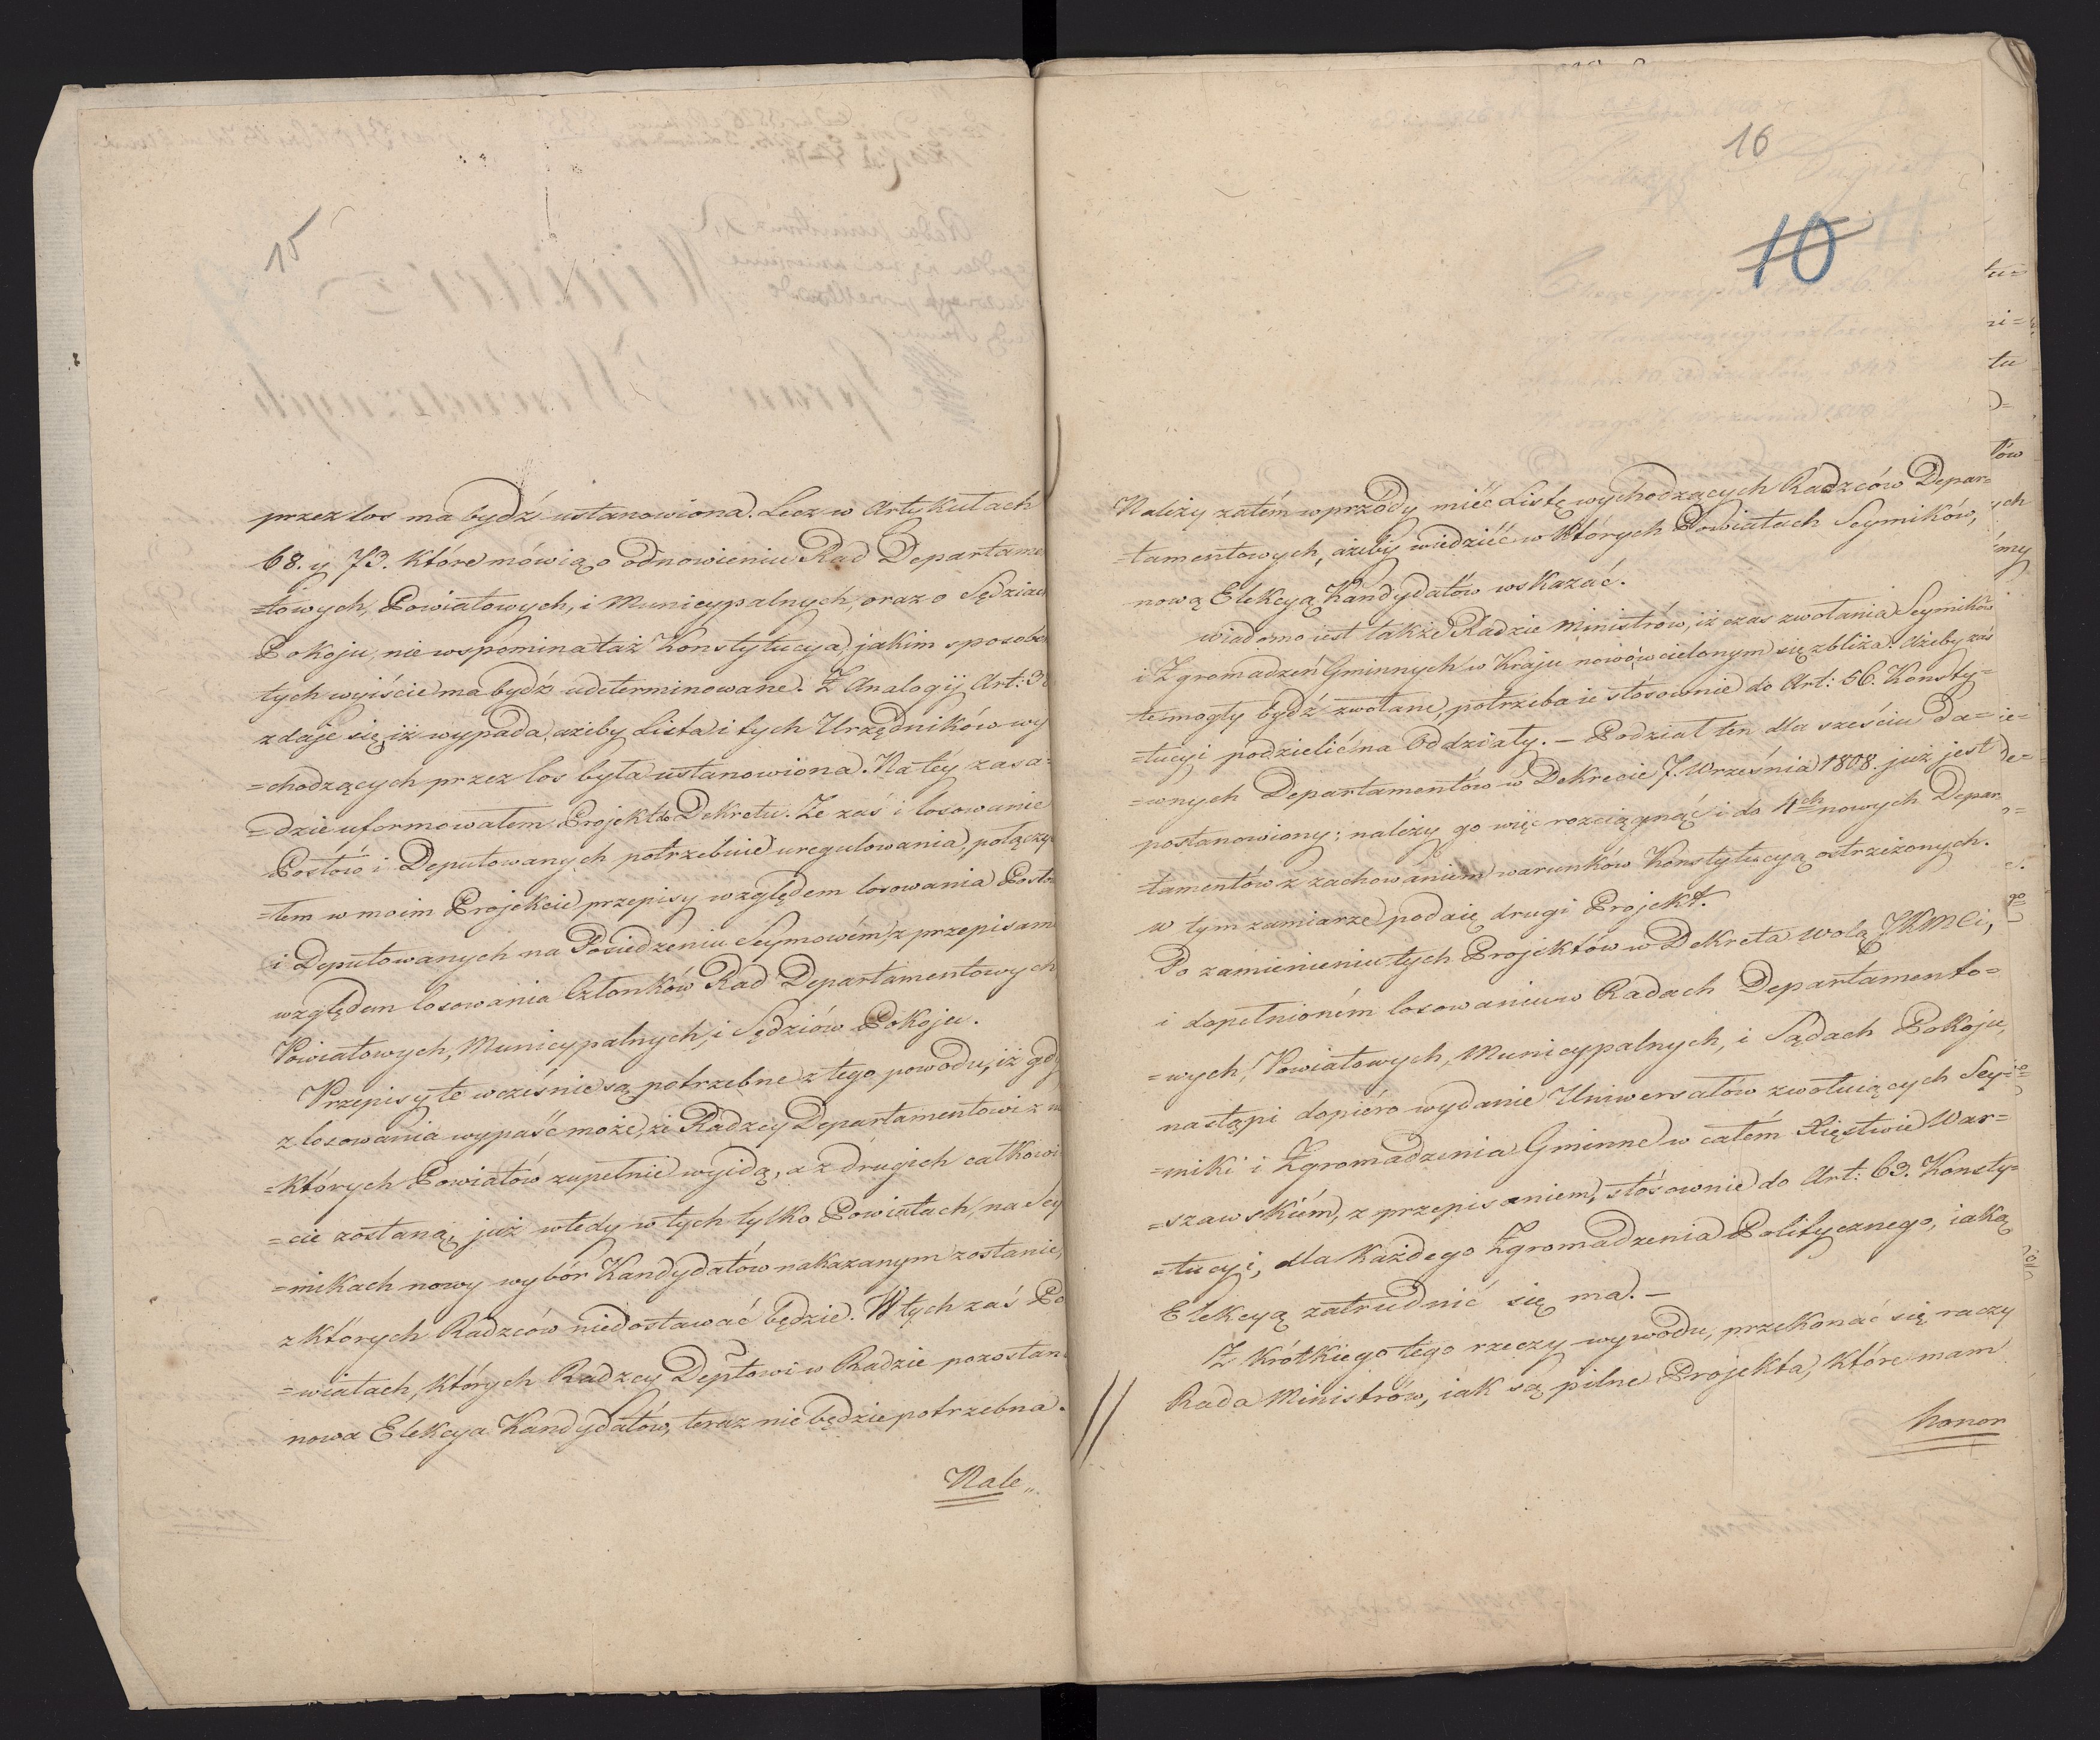 15
przez los ma bydź ustanowiona. Lecz w Artykułach
68. y 73. które mówią o odnowieniu Rad Departame
=towych, Powiatowych, i Municypalnych, oraz o Sędziach
Pokoju, nie wspomina taż Konstytucya, jakim sposobe
tych wyiście ma bydź udeterminowane. Z Analogij Art: 3
zdaje się, iż wypada, ażeby Lista i tych Urzędników wy
=chodzących przez los była ustanowiona. Na téy zasa=
=dzie uformowałem Projekt do Dekretu. Ze zaś i losowanie
Posłów i Deputowanych potrzebuie uregulowania, połączy
=łem w moim Projekcie przepisy względem losowania Posłó
i Deputowanych na Posiedzeniu Seymowém, z przepisam
względem losowania Członków Rad Departamentowych
Powiatowych, Municypalnych, i Sędziów Pokoju.
Przepisy te wcześnie są potrzebne z tego powodu, iż gdy
z losowania wypaść może, że Radzcy Departamentowi z n
=których Powiatów zupełnie wyidą, a z drugich całkowi
=cie zostaną, już wtedy w tych tylko Powiatach, na Sey
=mikach nowy wybór Kandydatów nakazanym zostanie,
z których Radzców niedostawać będzie. W tych zaś Po
=wiatach, których Radzcy Deptowi w Radzie pozostan
nowa Elekcya Kandydatów, teraz nie będzie potrzebna.
Nale„
16
10
Należy zatém wprzódy mieć Listę wychodzących Radzców Depar=
=tamentowych, ażeby wiedzieć w których Powiatach Seymików,
nową Elekcyą Kandydatów wskazać.
wiadomo iest także Radzie Ministrów, iż czas zwołania Seymików
i Zgromadzeń Gminnych w Kraju nowo wcielonym się zbliża. Ażeby zaś
te mogły bydź zwołane, potrzeba ie stósownie do Art: 56. Konsty=
=tucyi podzielić na Oddziały. – Podział ten dla sześciu da=
=wnych Departamentów w Dekrecie 7. Września 1808. już jest
postanowiony; należy go więc rozciągnąć i do 4ch nowych Depar
=tamentów z zachowaniem warunków Konstytucyą ostrzeżonych.
w tym zamiarze podaię drugi Projekt.
Po zamienieniu tych Projektów w Dekreta wolą JKMCi,
i dopełnioném losowaniu w Radach Departamento=
=wych, Powiatowych, Municypalnych, i Sądach Pokoju,
nastąpi dopiéro wydanie Uniwersałów zwołuiących Sey=
=miki i Zgromadzenia Gminne w całém Xięstwie War=
=szawskiém, z przepisaniem, stósownie do Art: 63. Konsty=
=tucyi, dla każdego Zgromadzenia Politycznego, iaką
Elekcyą zatrudnić się ma. –
Z krótkiego tego rzeczy wywodu, przekonać się raczy
Rada Ministrów, iak są pilne Projekta, które mam
honor